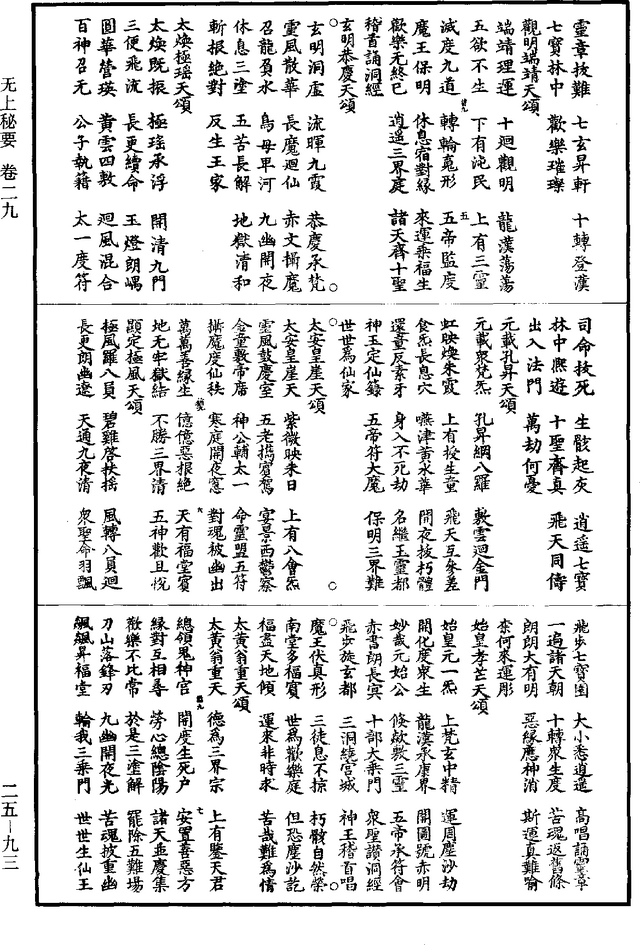 无上秘要 卷二九
二五–九三
靈章拔難 七玄昇軒 十轉登漢
七寳林中 歡樂璀璨
觀明端靖天頌
端靖理運 十迴觀明 龍漢蕩蕩
五欲不生 下有沌民 上有三靈
滅度九道 轉輪嵬形 五帝監度
魔王保明 休息宿對緣 來運乘福生
歡樂無終已 逍遥三界庭 諸天齊十聖
稽首誦洞經
玄明恭慶天頌
玄明洞虛 流暉九霞 恭慶承梵
靈風散華 長魔迴仙 赤文攝魔
召龍負水 鳥母甲河 九幽開夜
休息三塗 五苦長解 地獄清和
斬根絕對 反生王家
太煥極瑶天頌
太煥既振 極瑶承浮 開清九門
三便飛流 長更續命 玉燈朗嵎
圓華營瑛 黄雲四敷 迴風混合
百神召无 公子執籍 太一度符
司命拔死 生骸起灰 逍遥七寳
林中熈遊 十聖齊真 飛天同儔
出入法門 萬劫何憂
元載孔昇天頌
元載衆梵炁 孔昇網八羅 敷雲迴金門
虹映煥朱霞 上有校生童 飛天互參差
食炁長息穴 嚥津黄水華 開夜拔朽體
還童反素牙 身入不死劫 名繼王靈都
神玉定仙籙 五帝符大魔 保明三界難
世世爲仙家
太安皇崖天頌
太安皇崖天 紫微映朱日 上有八會炁
靈風鼓慶室 五老撝寳駕 宴景西鬱察
金童敷帝席 神公輔太一 命靈盟五符
攝魔度仙秩 寒庭開夜窓 對魂披幽出
萬萬善緣生 億億惡根絕 天有福堂賓
地无牢獄結 不勝三界清 五神歡且悅
顯定極風天頌
極風羅八員 碧雞啓扶摇 風轉八員迴
長更朗幽遼 天通九夜清 衆聖命羽飄
飛步七寳園 大小悉逍遥 高唱誦靈章
一遍諸天朝 十轉衆生度 苦魂返舊條
朗朗大有明 惡緣應神消 斯運真難喻
柰何來運彫
始皇孝芒天頌
始皇元一炁 上梵玄中精 運周塵沙劫
開化度衆生 龍漢承康界 開圖號赤明
妙哉元始公 倏欻敷三靈 五帝承符會
赤書朗長㝠 十部大乘門 衆聖讃洞經
飛步旋玄都 三洞繞宫城 神王稽首唱
魔王伏真形 三徒息不掠 朽骸自然榮
南堂多福賓 世爲歡樂庭 但恐塵沙訖
福盡天地傾 運來非時求 苦哉難爲情
太黄翁重天頌
太黄翁重天 德爲三界宗 上有鑒天君
總領鬼神官 開度生死户 安置善惡方
緣對互相尋 勞心總陰陽 諸天並慶集
歡樂不比常 於是三塗解 罷除五難場
刀山落鋒刃 九幽開夜光 苦魂披重幽
飄飄昇福堂 輪我三乘門 世世生仙王